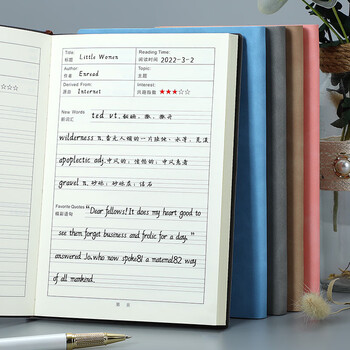 Title: Little Women Reading Time:
标题 阅读时间 2022-3-2
Author: Enread Topic:
作者 主题
Derived From: Interest:
源自 Internet 兴趣指数 ★★★☆☆
New Words ted vt.
新词汇
wilderness n. 杳无人烟的一片陆地、水等,荒漠
apoplectic adj. 中风的;愤怒的;中风患者
gravel n. 砂砾;砂砾层;结石
Favorite Quotes "Dear fellows! It does my heart good to
精彩语句
see them forget business and frolic for a day,"
answered Jo, who now spoke81 a maternal82 way
of all mankind.